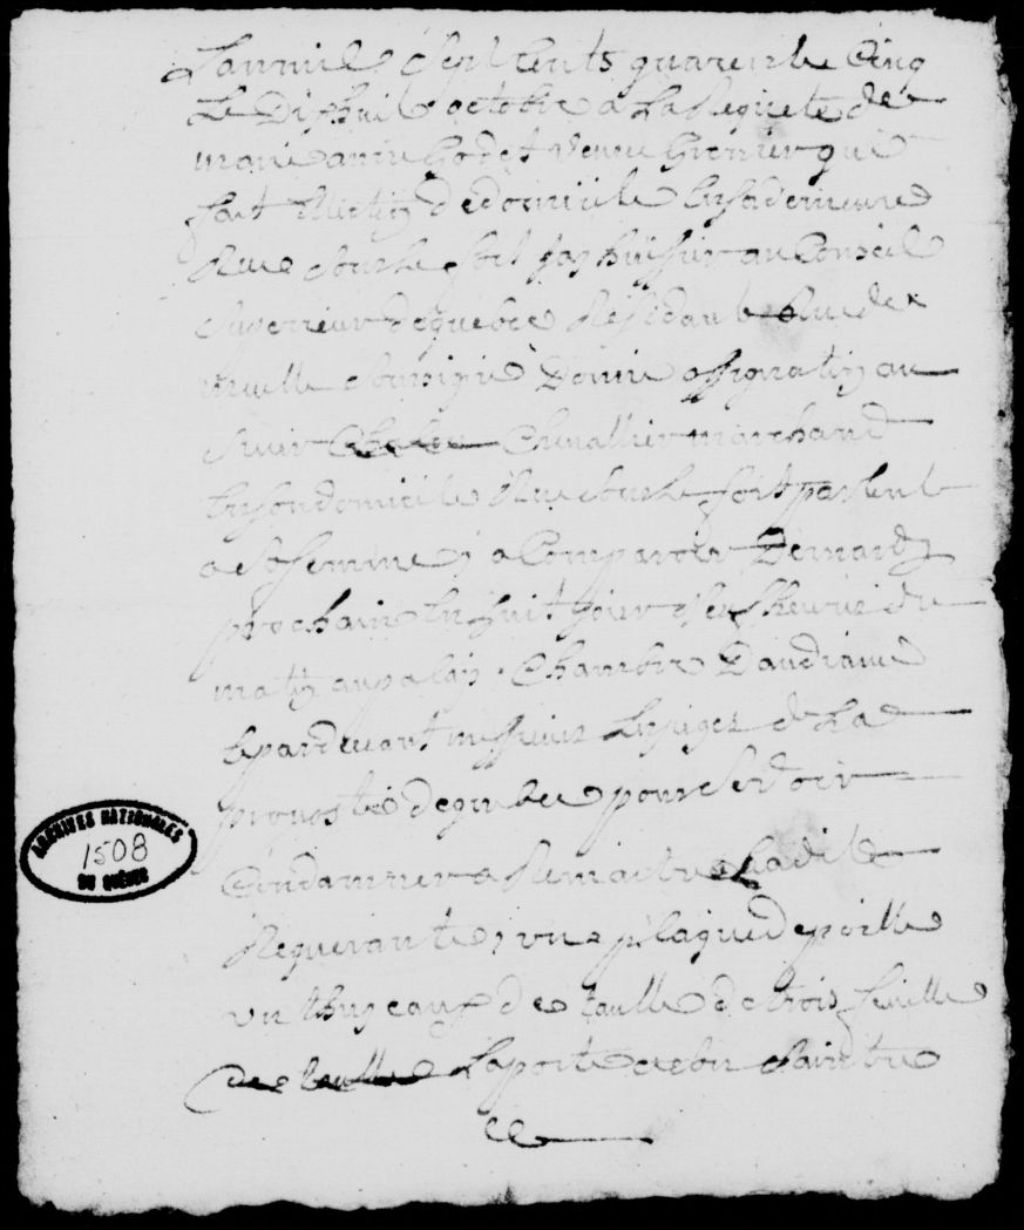 Lanmil Sept Cents quarente Cinq
Le Dixhuit octobre a La Requete de
marie anne Godet veuve Grenier qui
fait Election de domicile En sa demeure
Rue Sous Le fort Jay huissier au Conseil
Superieur de quebec Residant Rue de
Soussigné Donné assignation au
Sieur Chevallier marchand
En son domicile Rue Sous Le fort parlent
a Sa femme, a Comparoir Demardy
prochain En huit jour neuf heure du
matin au palais Chambre Daudiance
Et pardevant messieurs Les juges de La
prevosté de quebec pour Se voir
Condamner a Remaitre a Ladite
Requerante, une plaque de poille
un thuyeaux de taulle de trois feuille
de taulle La porte
ARCHIVES NATIONALES
1508
DU QUÉBEC